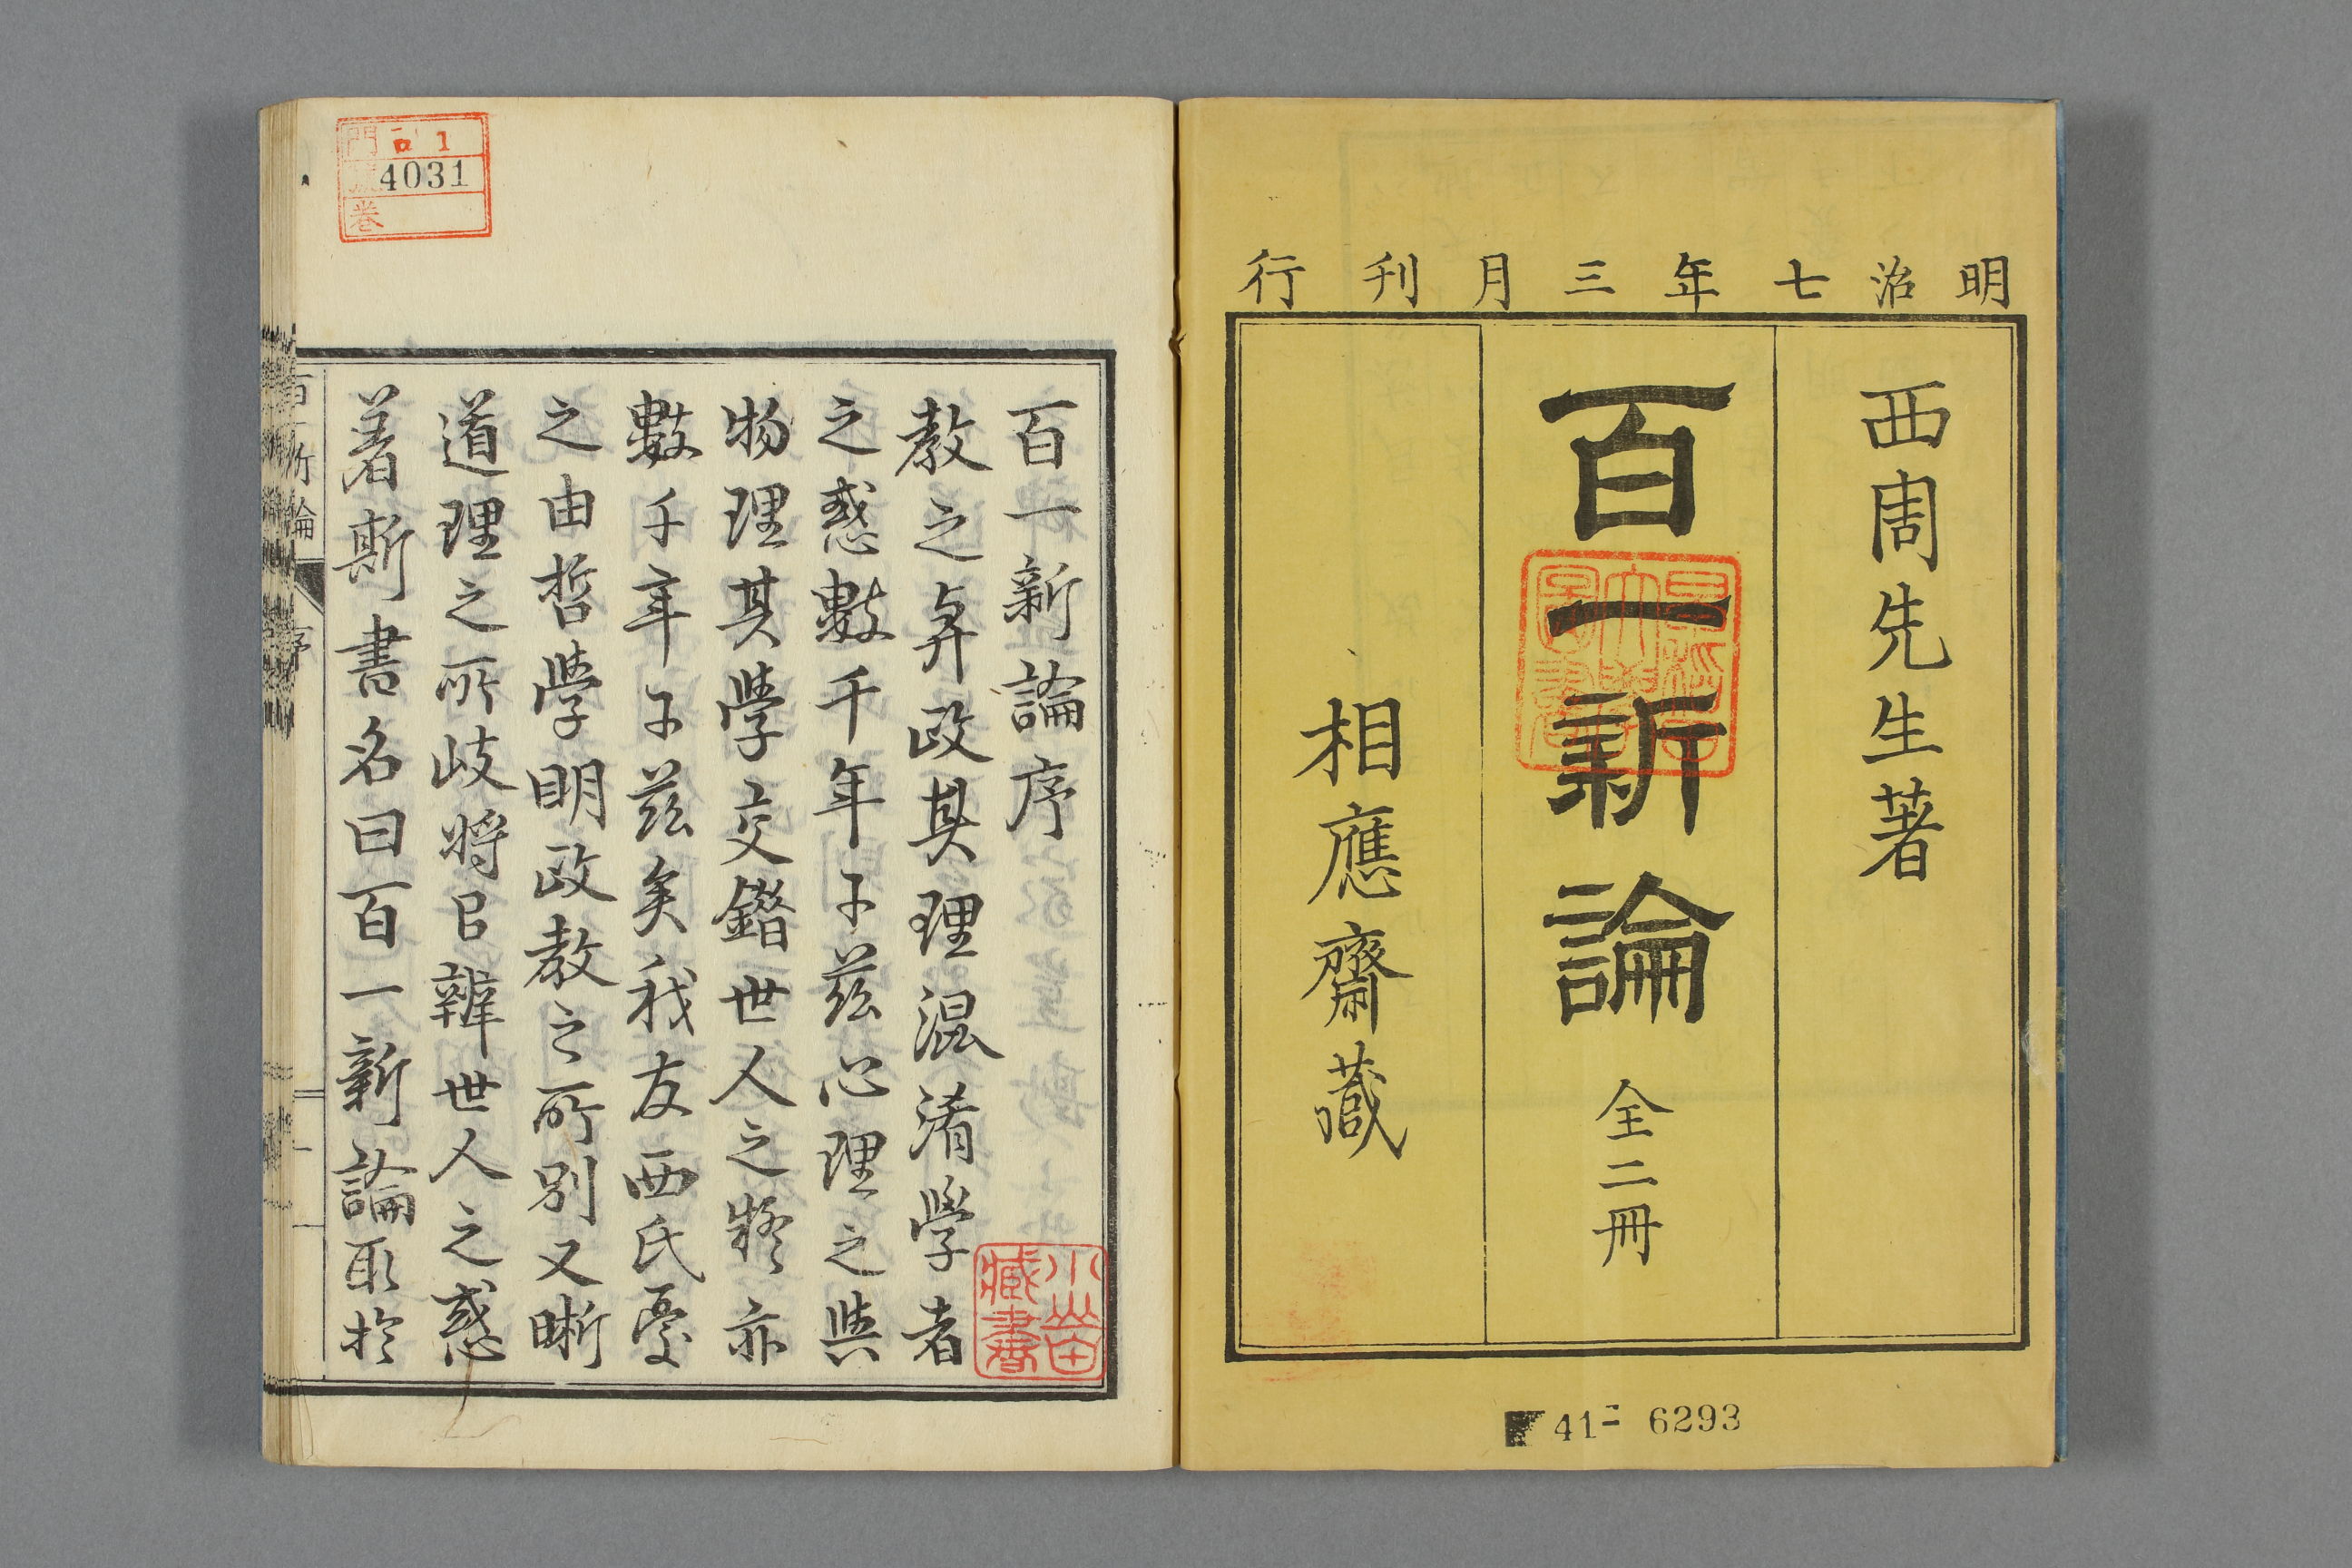 明治七年三月刊行
西周先生著
百一新論 全二冊
相應齋蔵
41- 6293
門 ロ 1
4031
巻
百一新論序
教之與政其理混淆學者
之惑數千年于茲心理之與
物理其學交錯世人之疑亦
數千年于茲矣我友西氏憂
之由哲學明政教之所別又晰
道理之所岐将以辨世人之惑
著斯書名曰百一新論取於
藏書